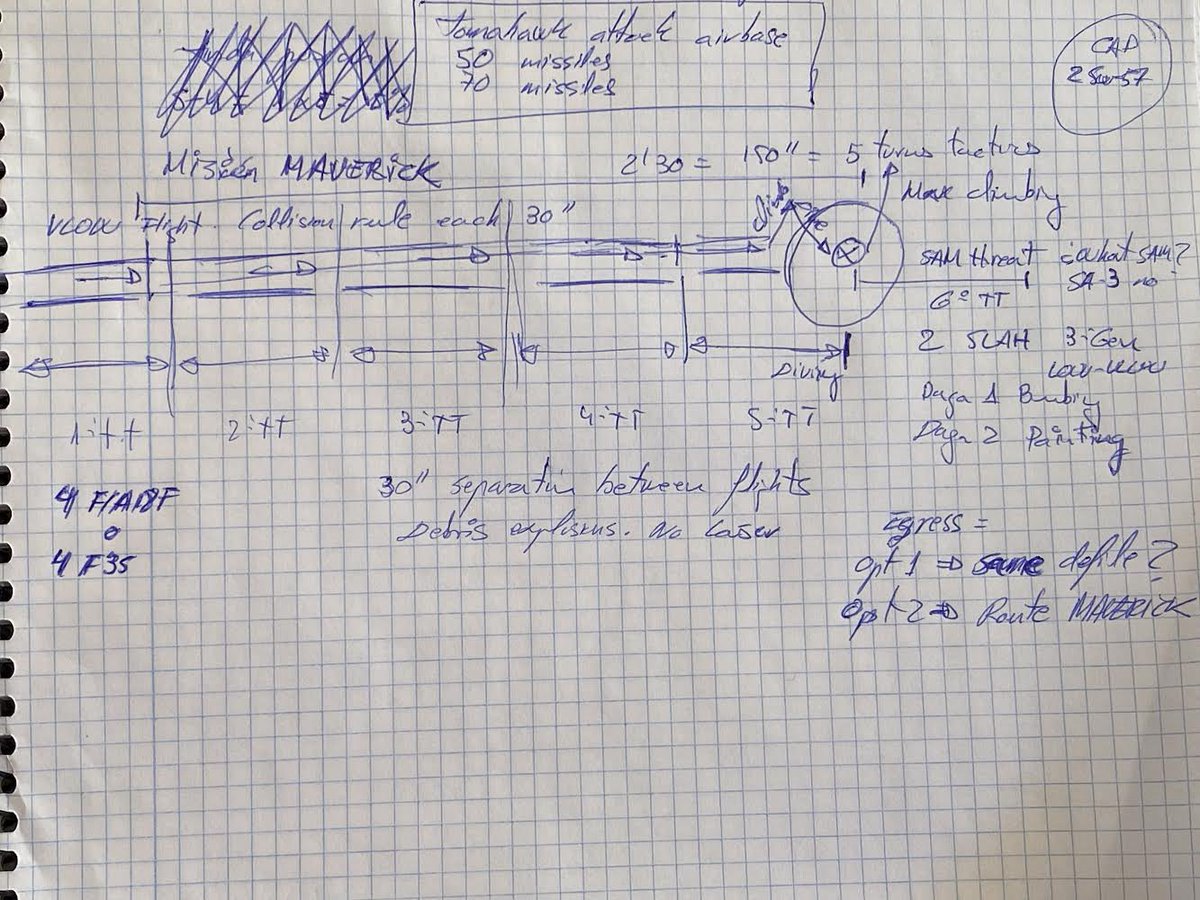 Tomahawk attack airbase
50 missiles
70 missiles
CAP
2 Su-57
Misión MAVERICK
2'30 = 150" = 5 turns tactics
Max climbing
VLOW Flight. Collision rule each 30"
Climb
SAM threat ¿what SAM?
SA-3 no
6º TT
2 SLAM 3-i Gen
LOW-VLOW
Diving
Daga 1 Bombing
Daga 2 Painting
1-i TT
2-i TT
3-i TT
4-i TT
5-i TT
4 F/A18F
o
4 F35
30" separation between flights
Debris explosions. No Laser
Egress =
opt 1 ⇒ same defile?
Opt 2 ⇒ Route MAVERICK